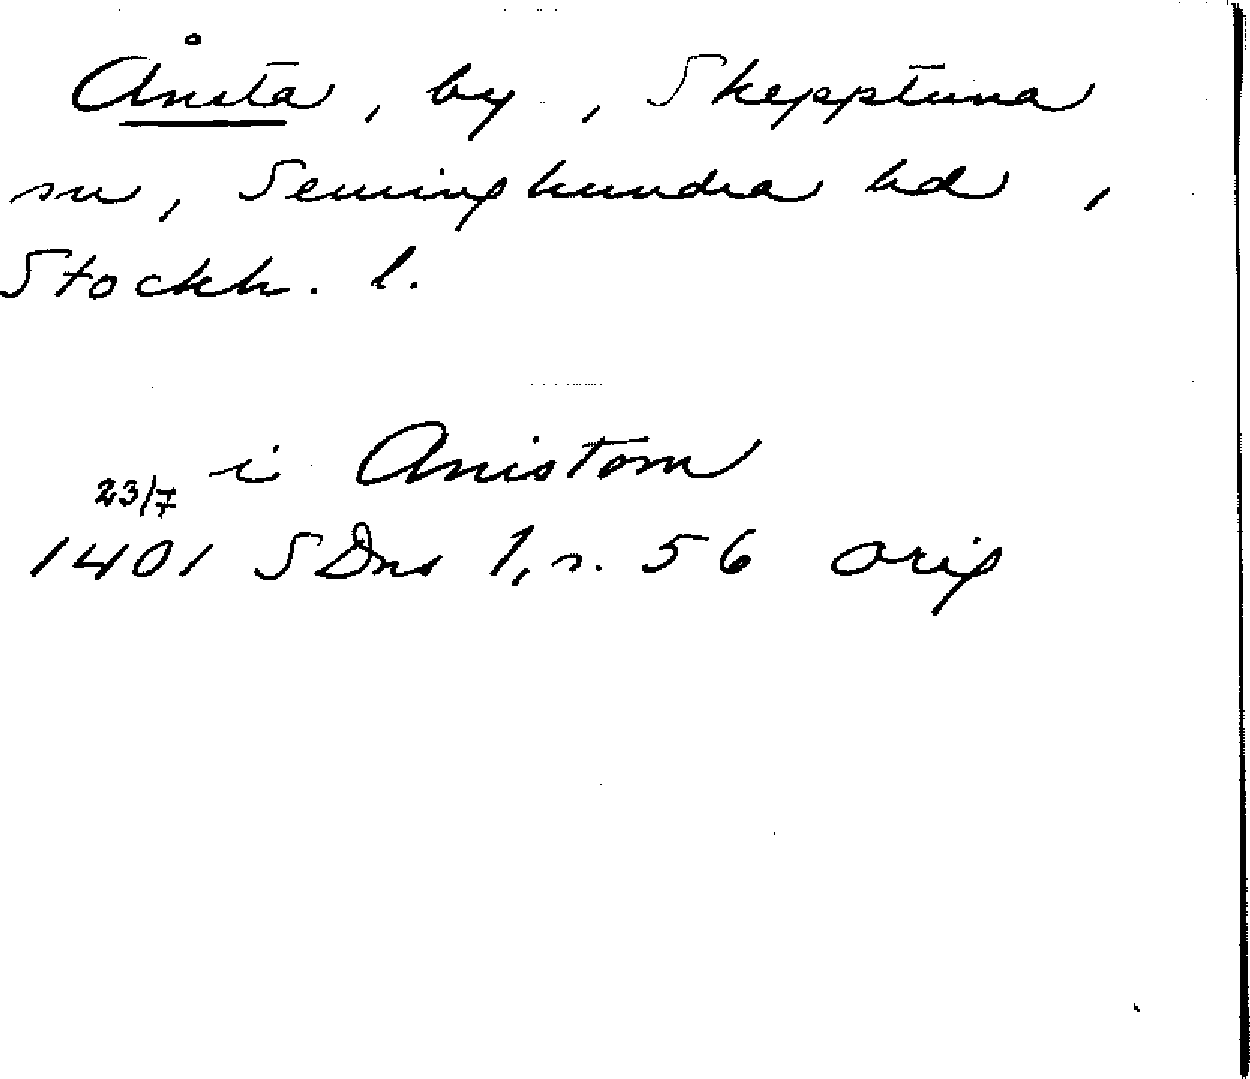 Ånsta, by, Skepptuna
sn, Seminghundra hd,
Stockh. l.
i Anistom
23/7
1401 SDns 1, s. 56 orig